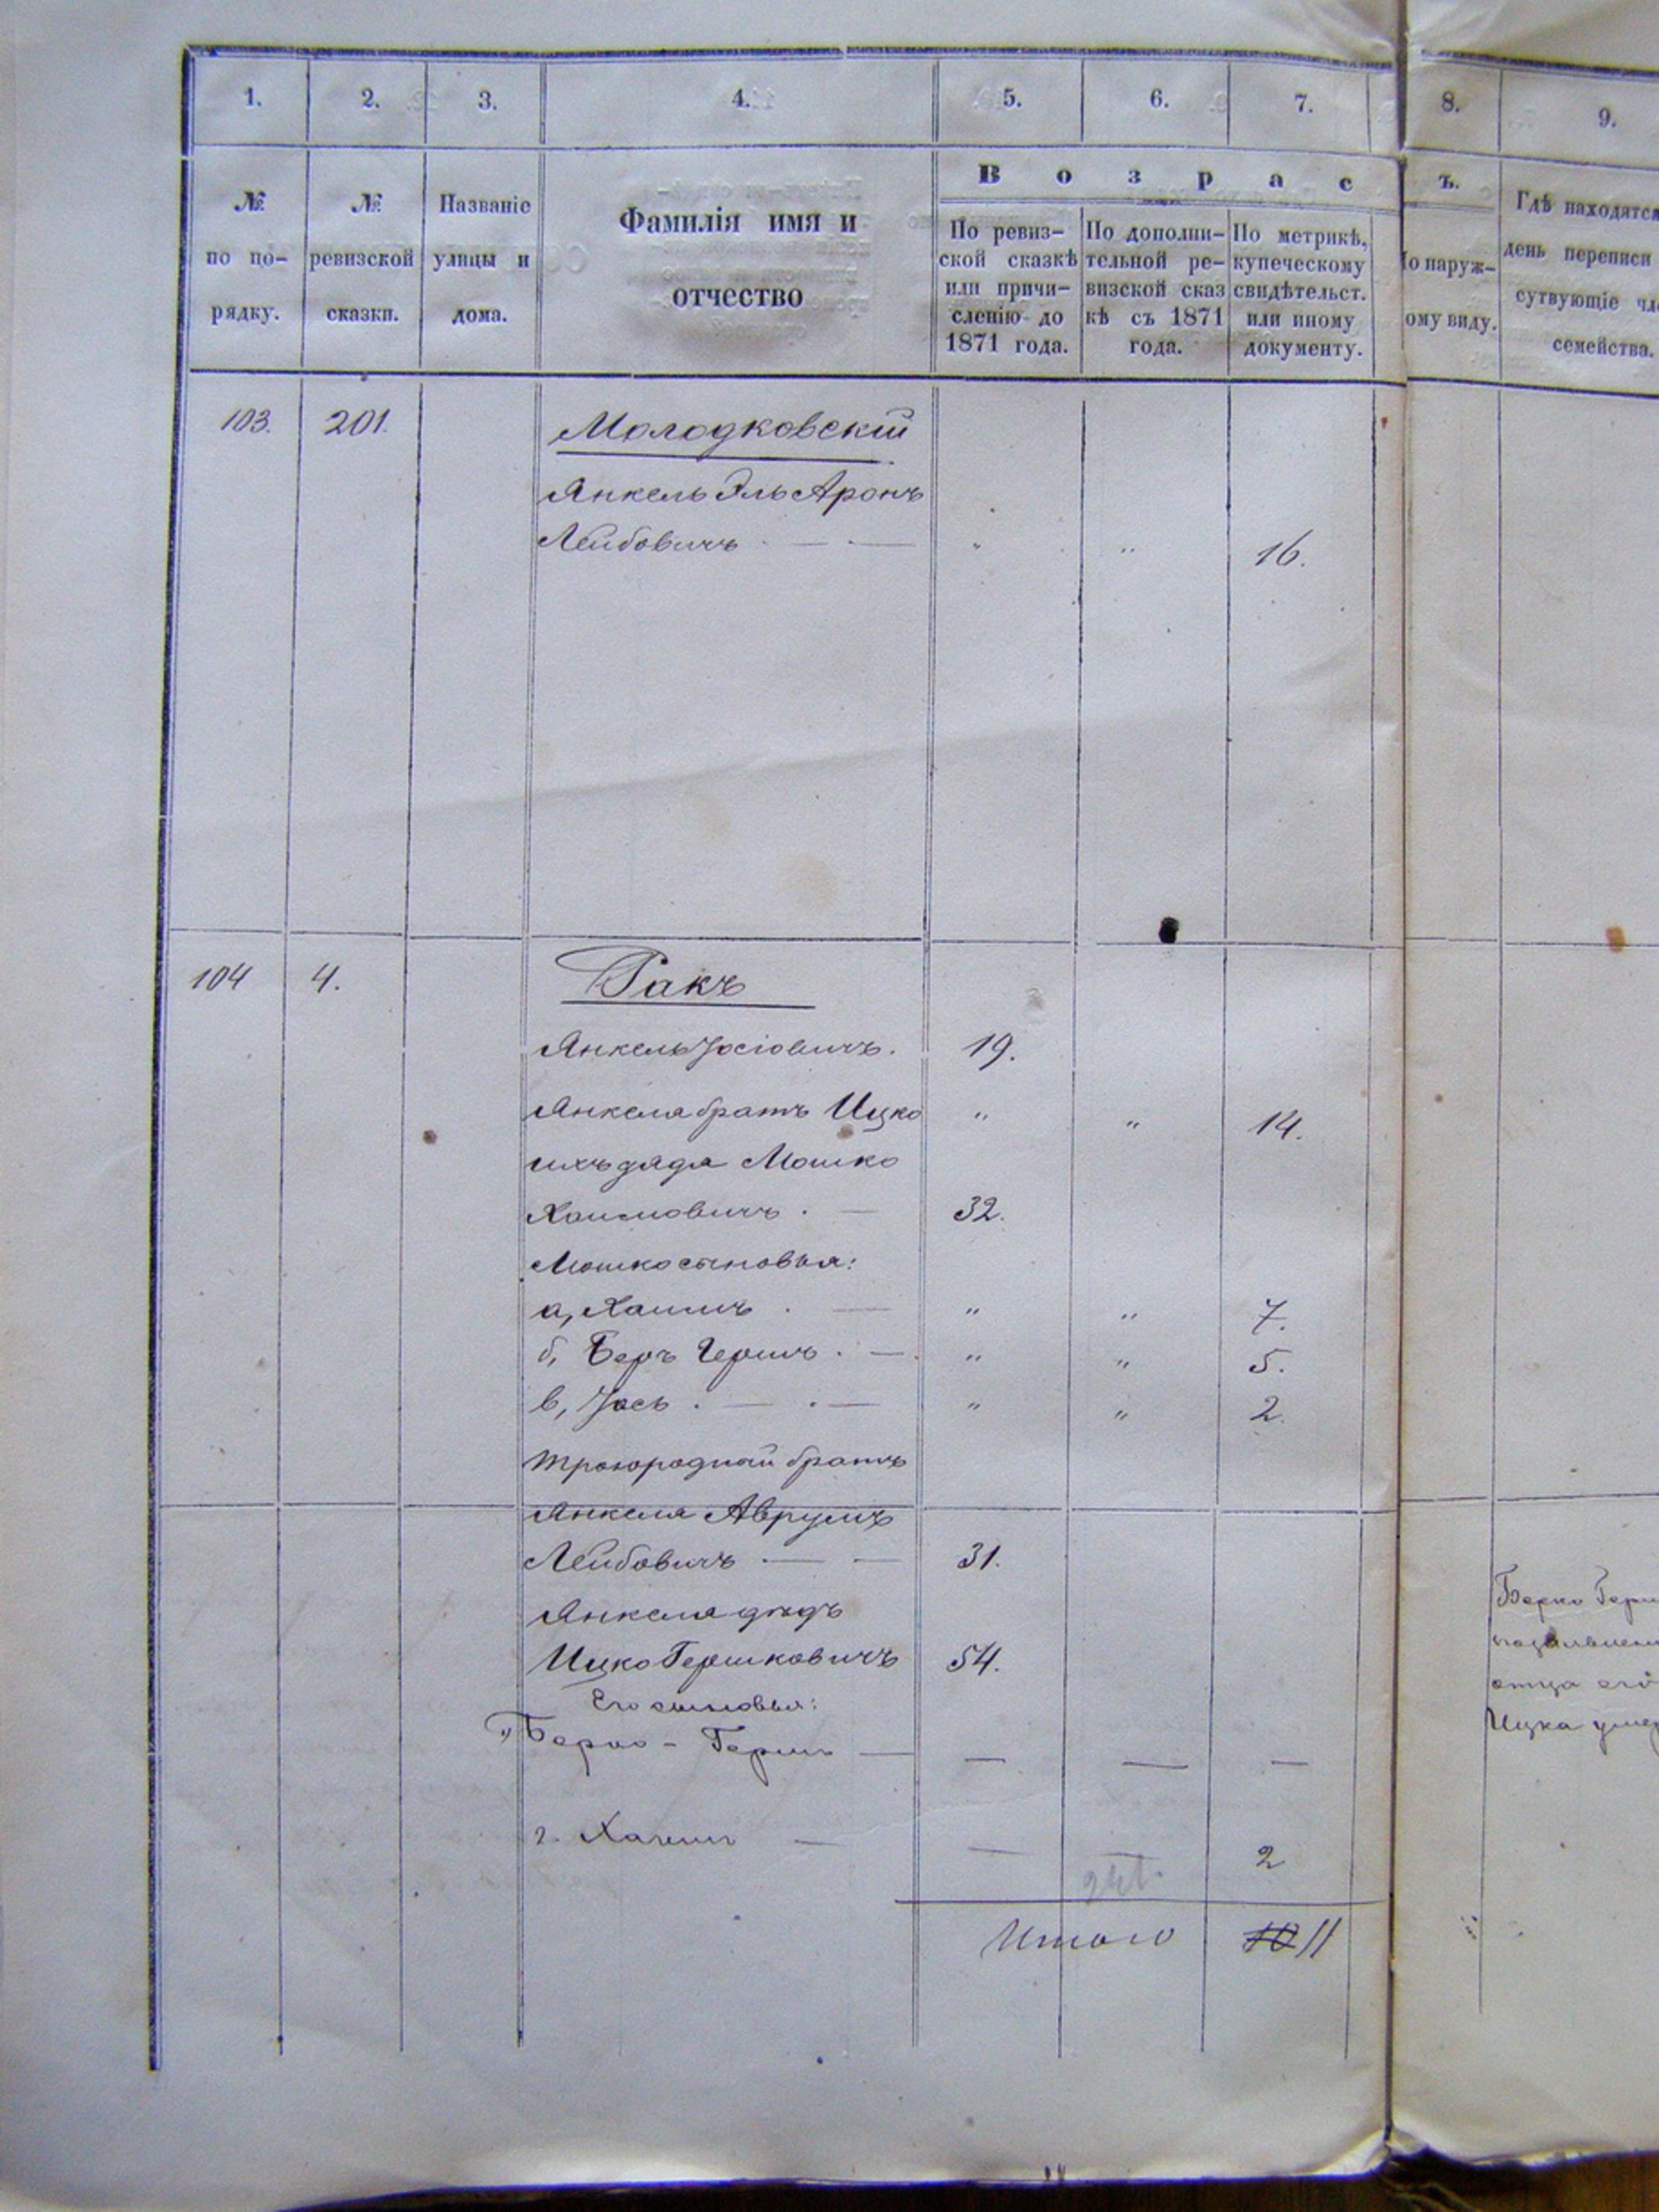 1. 2. 3. 4. 5. 6. 7. 8. 9.
№ по порядку.
№ ревизской сказки.
Названіе улицы и дома.
Фамилія имя и
отчество
Возрас
ъ.
По ревиз-
ской сказкѣ
или причи-
сленію до
1871 года.
По дополни-
тельной ре-
визской сказ
кѣ съ 1871
года.
По метрикѣ,
купеческому
свидѣтельст.
или иному
документу.
о наруж-
ому виду.
Гдѣ находятся
день переписи
сутвующіе чл
семейства.
103. 201. Молодковскій
Янкель Эль Аронъ
Лейбовичъ . — . — " " 16.
104 4. Ракъ
Янкель Іосіовичъ. 19.
Янкеля братъ Ицко " " 14.
ихъ дядя Мошко
Хаимовичъ . — 32.
Мошко сыновья:
а, Хаимъ . — " " 7.
б, Беръ Гершъ . — " " 5.
в, Іось . — . — " " 2.
троюродный братъ
Янкеля Аврумъ
Лейбовичъ . — — 31.
Янкеля дядъ
Ицко Гершковичъ 54.
Его сыновья:
Берко - Гершъ — — — —
2. Хаимъ — — 2
Итого 10 11
Берко Герш
отца его
Ицка умер